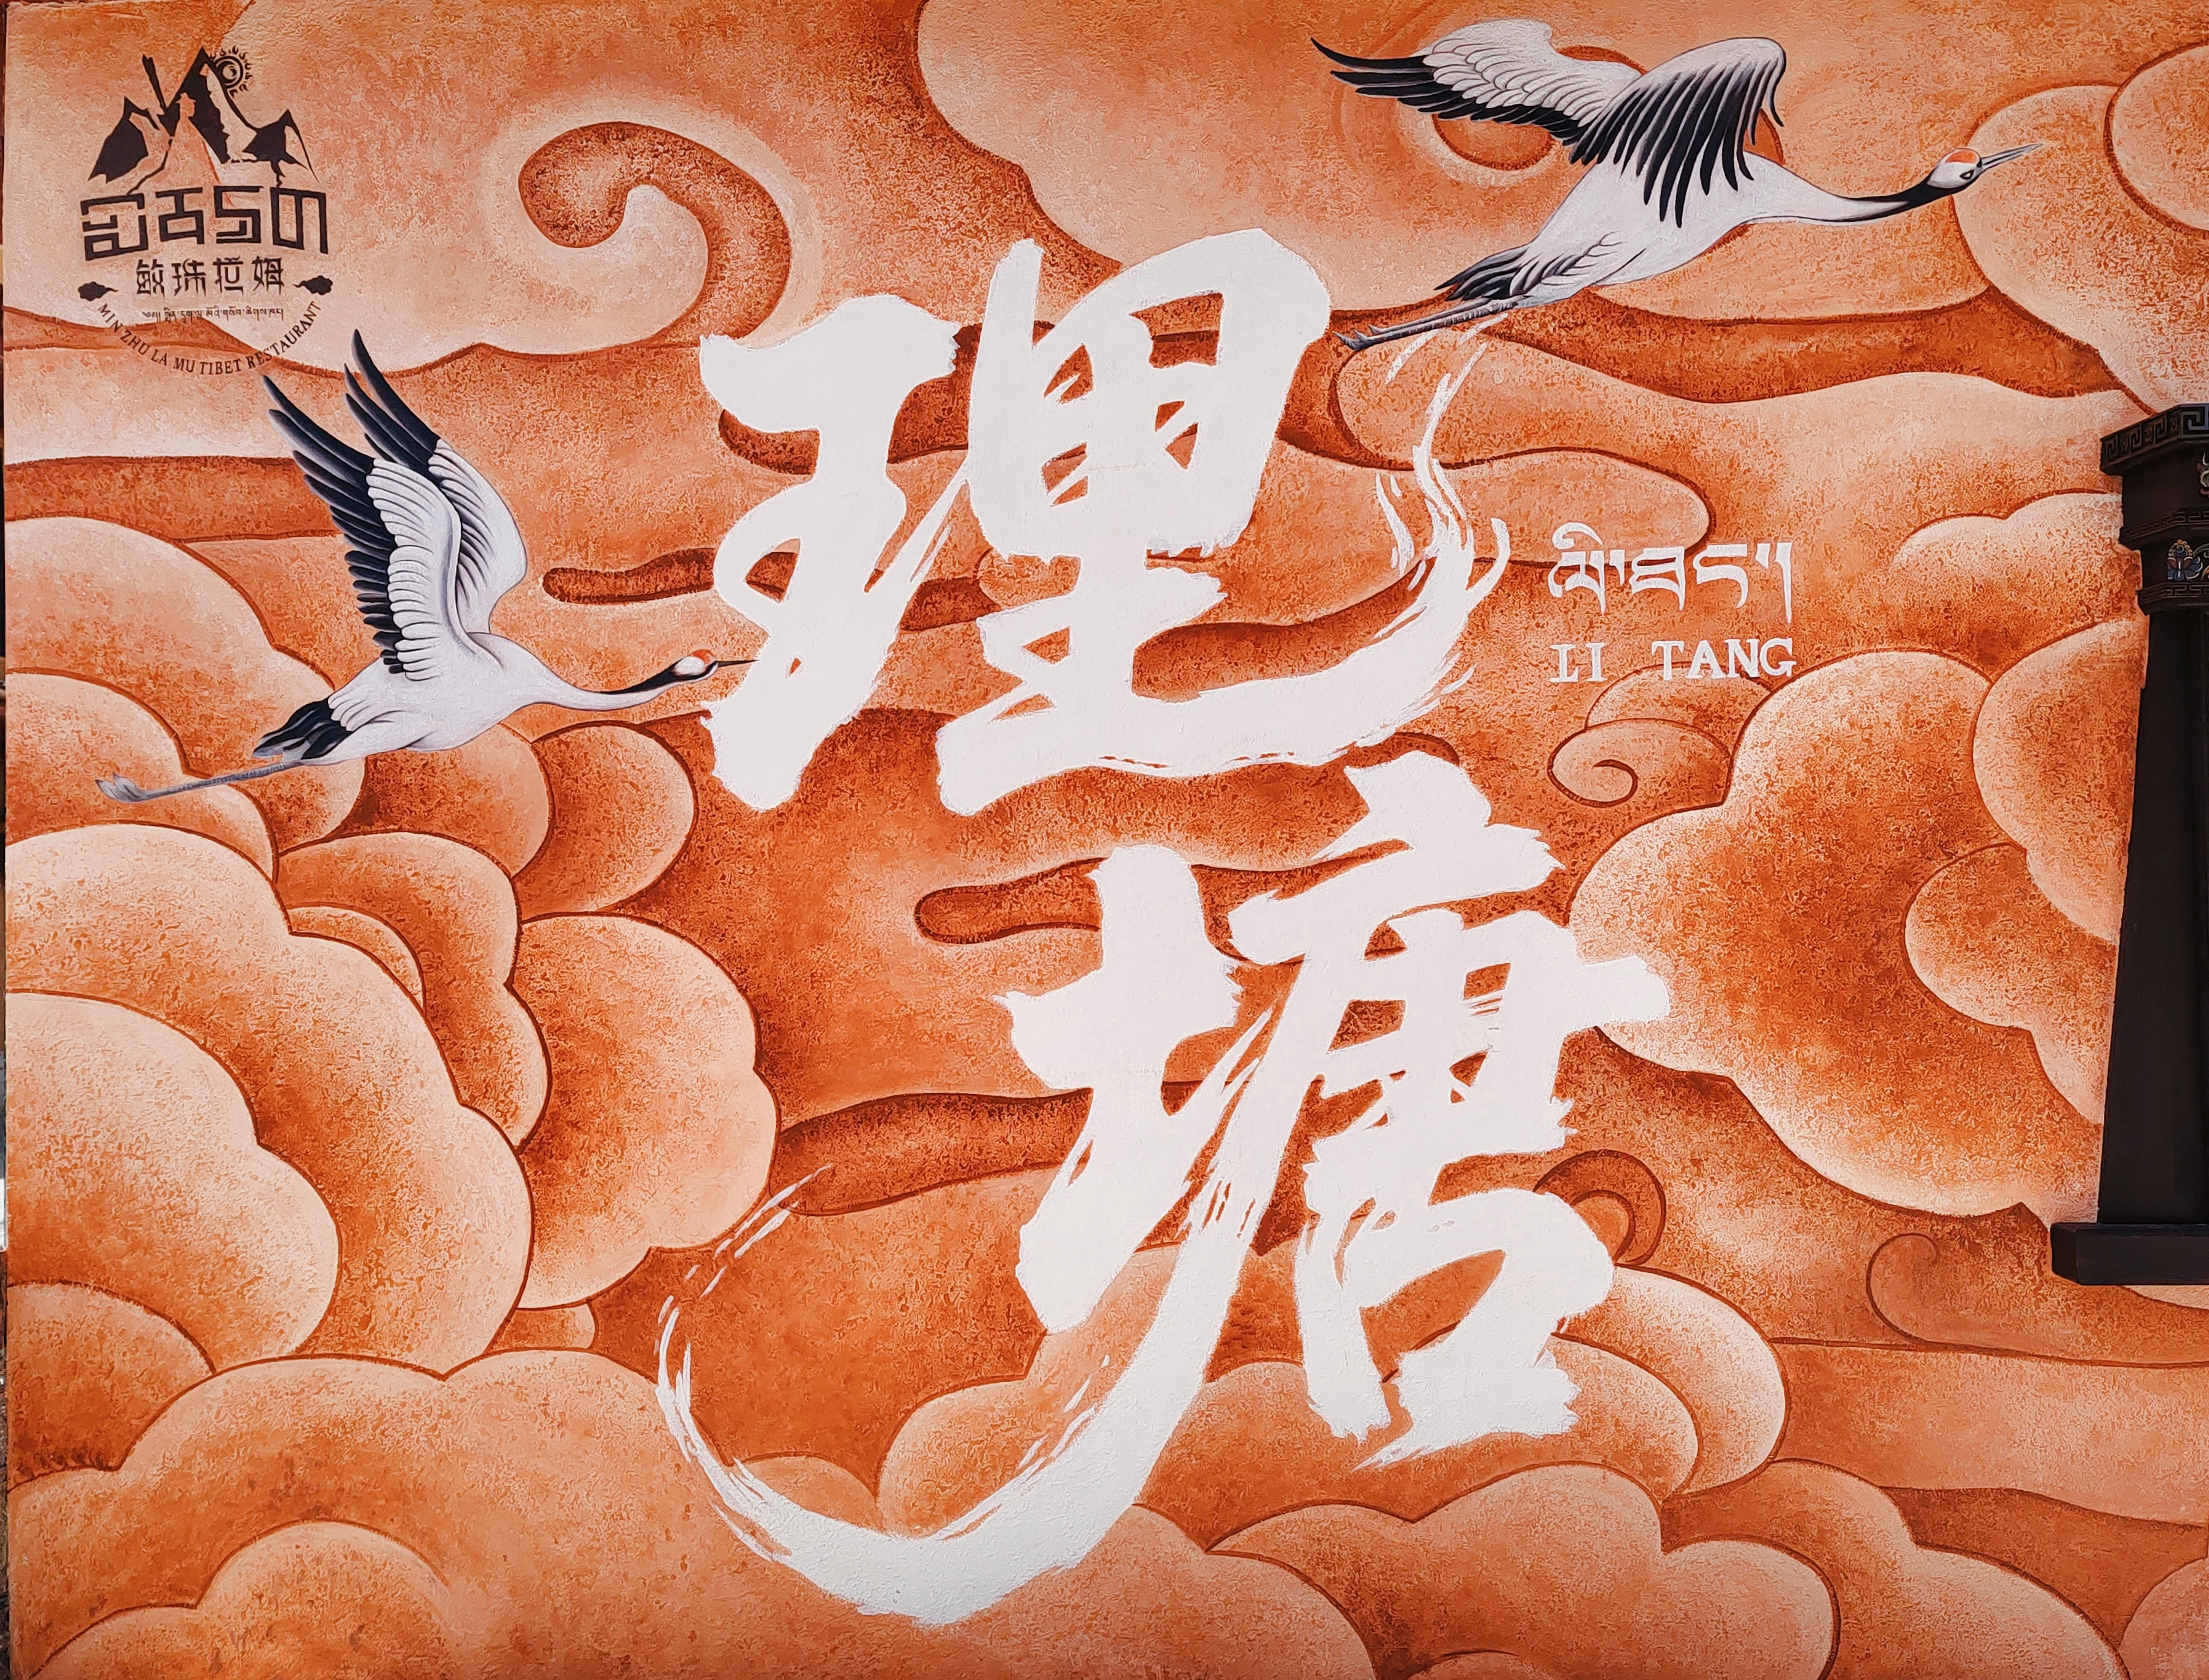 敏珠拉姆
MIN ZHU LA MU TIBET RESTAURANT
理塘
ལི་ཐང༌།
LI TANG